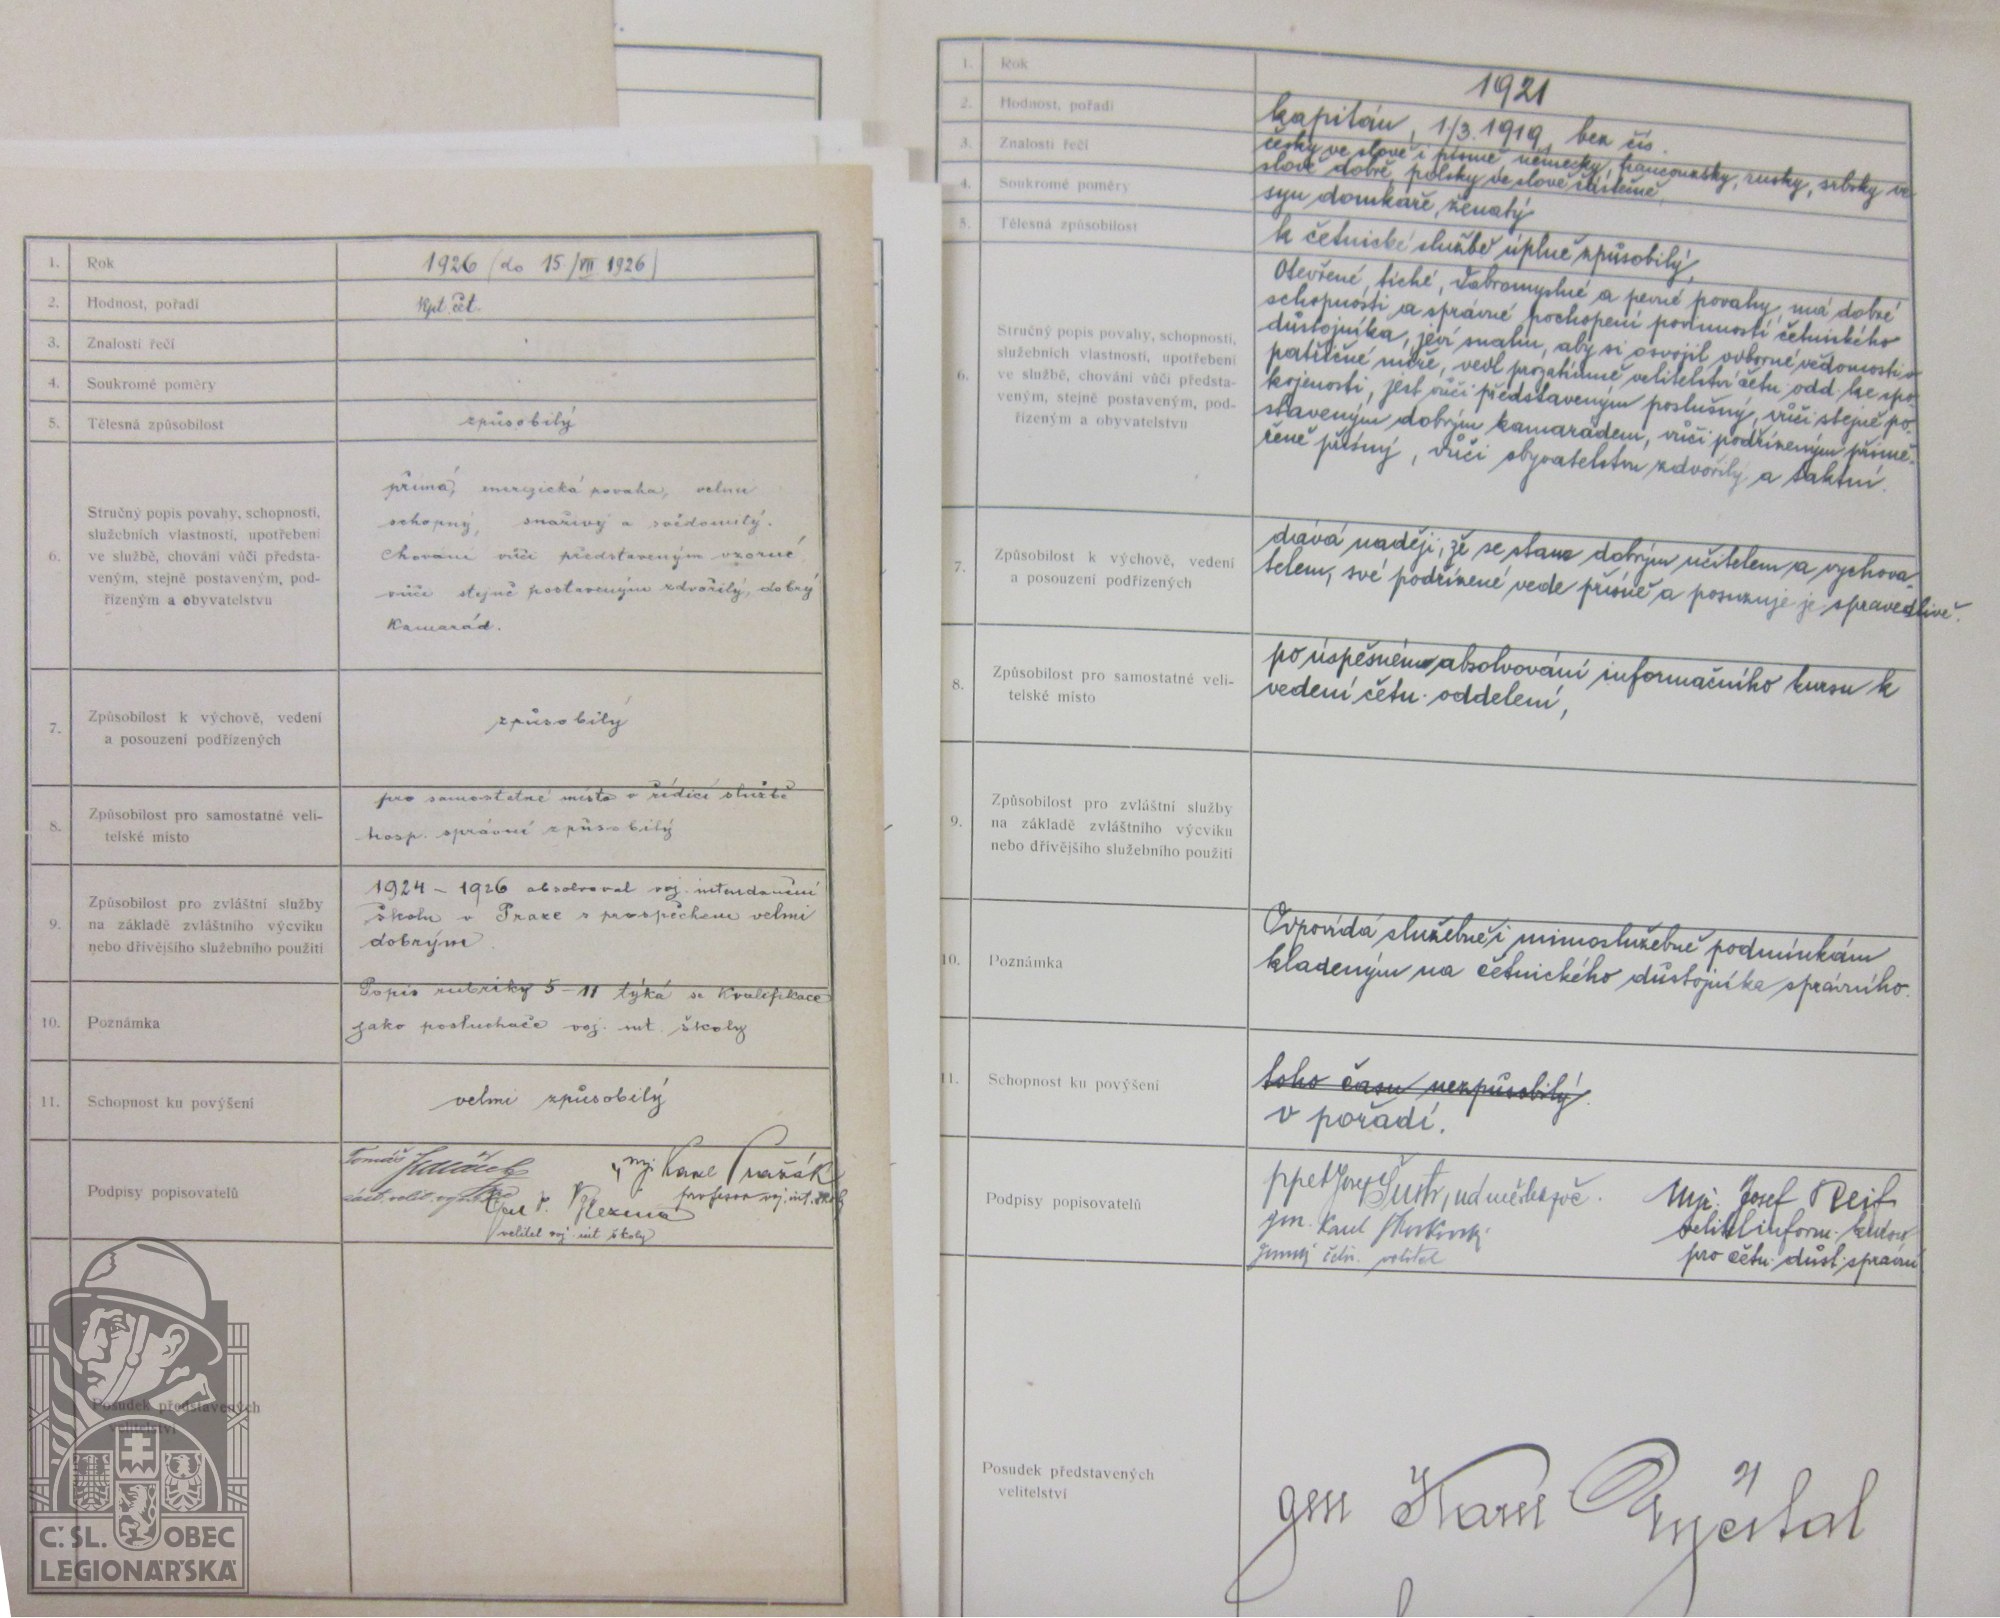 1. Rok 1926 (do 15./VII 1926)
2. Hodnost, pořadí Kpt. čet.
3. Znalosti řečí
4. Soukromé poměry
5. Tělesná způsobilost způsobilý
6. Stručný popis povahy, schopností,
služebních vlastností, upotřebení
ve službě, chování vůči předsta-
veným, stejně postaveným, pod-
řízeným a obyvatelstvu
přímá, energická povaha, velmi
schopný, snaživý a svědomitý.
Chování vůči představeným vzorné
vůči stejně postaveným zdvořilý, dobrý
kamarád.
7. Způsobilost k výchově, vedení
a posouzení podřízených
způsobilý
8. Způsobilost pro samostatné veli-
telské místo
pro samostatné místo v řídící službě
hosp. správní způsobilý
9. Způsobilost pro zvláštní služby
na základě zvláštního výcviku
nebo dřívějšího služebního použití
1924 – 1926 absolvoval voj. intendanční
školu v Praze s prospěchem velmi
dobrým.
10. Poznámka
Popis rubriky 5–11 týká se kvalifikace
jako posluchače voj. int. školy
11. Schopnost ku povýšení velmi způsobilý
Podpisy popisovatelů
Tomáš
mjr. Karel Pražák
profesor voj. int. školy
velitel voj. int. školy
Posudek představených
velitelství
Č.SL. OBEC
LEGIONÁŘSKÁ
1. Rok 1921
2. Hodnost, pořadí kapitán, 1/3. 1919, bez čís.
3. Znalosti řečí česky ve slově i písmě, německy, francouzsky, rusky, srbsky ve
slově dobře, polsky ve slově částečně,
4. Soukromé poměry syn domkaře, ženatý
5. Tělesná způsobilost k četnické službě úplně způsobilý,
6. Stručný popis povahy, schopností,
služebních vlastností, upotřebení
ve službě, chování vůči předsta-
veným, stejně postaveným, pod-
řízeným a obyvatelstvu
Otevřené, tiché, dobromyslné a pevné povahy, má dobré
schopnosti a správné pochopení povinností četnického
důstojníka, jeví snahu, aby si osvojil odborné vědomosti v
patřičné míře, vedl prozatímně velitelství četn. odd. ke spo-
kojenosti, jest vůči představeným poslušný, vůči stejně po-
staveným dobrým kamarádem, vůči podřízeným přimě-
řeně přísný, vůči obyvatelstvu zdvořilý a taktní.
7. Způsobilost k výchově, vedení
a posouzení podřízených
dává naději, že se stane dobrým učitelem a vychova-
telem, své podřízené vede přísně a posuzuje je spravedlivě.
8. Způsobilost pro samostatné veli-
telské místo
po úspěšném absolvování informačního kursu k
vedení četn. oddelení,
9. Způsobilost pro zvláštní služby
na základě zvláštního výcviku
nebo dřívějšího služebního použití
10. Poznámka
Odpovídá služebně i mimoslužebně podmínkám
kladeným na četnického důstojníka správního.
11. Schopnost ku povýšení
toho času nezpůsobilý.
v pořadí.
Podpisy popisovatelů
pplt Josef Šustr,
gen. Karel
zemský četn. velitel
Mjr. Josef Reif
velitel inform. kursu
pro četn. důst. správní
Posudek představených
velitelství
gen Karel